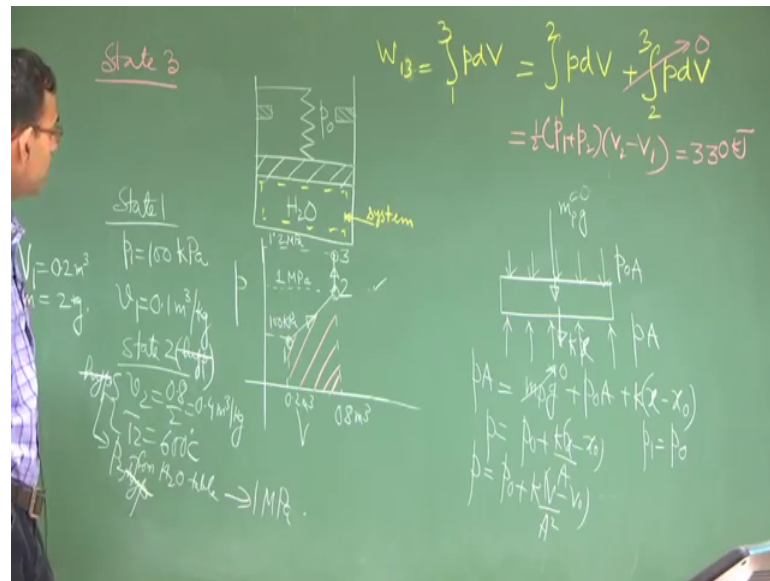 State 3
W₁₃ = ∫₁³ pdV = ∫₁² pdV + ∫₂³ pdV → 0
= ½(p₁+p₂)(V₂-V₁) = 330 kJ
p₀
H₂O
system
State 1
V₁ = 0.2 m³
p₁ = 100 kPa
m = 2 kg.
v₁ = 0.1 m³/kg
State 2
v₂ = 0.8/2 = 0.4 m³/kg
T₂ = 600°C
p₂ from H₂O table → 1 MPa.
p
1.2 MPa
3
1 MPa
2
100 kPa
1
0.2 m³
0.8 m³
V
mₚg = 0
p₀A
kx
pA
pA = mₚg → 0 + p₀A + k(x - x₀)
p = p₀ + k(x - x₀)/A
p₁ = p₀
p = p₀ + k(V - V₀)/A²